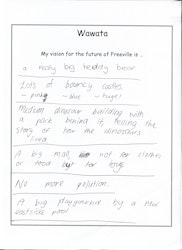 Wawata
My vision for the future of Freeville is ..
a really big teddy bear
Lots of bouncy castles
- pink - blue - huge!
Medium dinosaur building with
a park behind it, telling the
story of how the dinosaurs
lived
A big mall not for clothes
or food but for hugs
No more polution.
A big playground by a new
outside pool